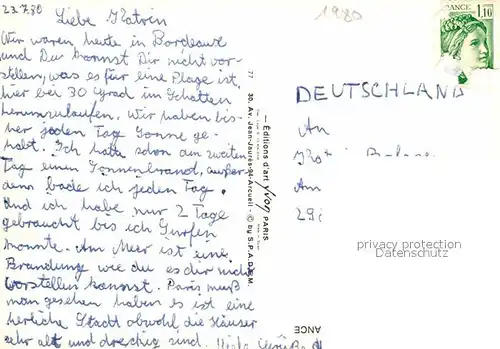 23.7.80
1980
Liebe Katrin
Wir waren heute in Bordeaux
und Du kannst Dir nicht vor-
stellen, was es für eine Plage ist,
hier bei 30 Grad im Schatten
herumzulaufen. Wir haben bis-
her jeden Tag Sonne ge-
habt. Ich hatte schon am zweiten
Tag einen Sonnenbrand, außer-
dem bade ich jeden Tag.
Und ich habe nur 2 Tage
gebraucht bis ich Surfen
konnte. Am Meer ist eine
Brandung wie du es dir nicht
vorstellen kannst. Paris muß
man gesehen haben es ist eine
herliche Stadt obwohl, die Häuser
sehr alt und dreckig sind. Viele Grüße
77
30, Av. Jean-Jaurès-94-Arcueil - © by S.P.A.D.E.M.
— Éditions d'art Yvon PARIS
FRANCE
1,10
DEUTSCHLAND
An
Am
privacy protection
Datenschutz
ANCE